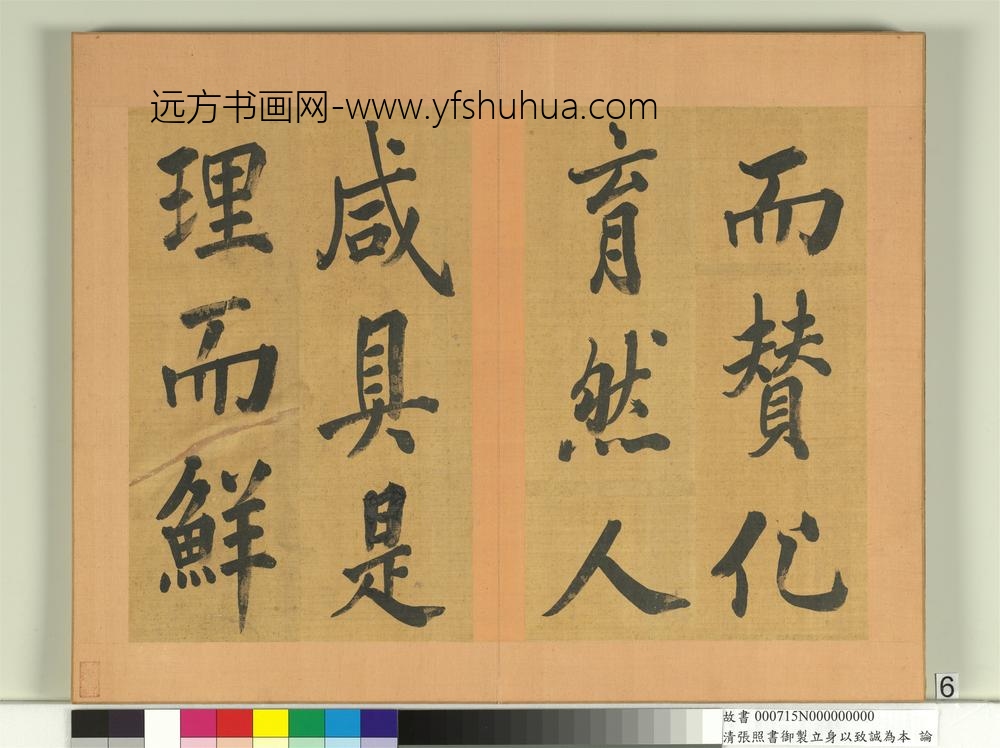 远方书画网-www.yfshuhua.com
而赞化
育然人
咸具是
理而鮮
6
故書 000715N000000000
清張照書御製立身以致誠為本 論